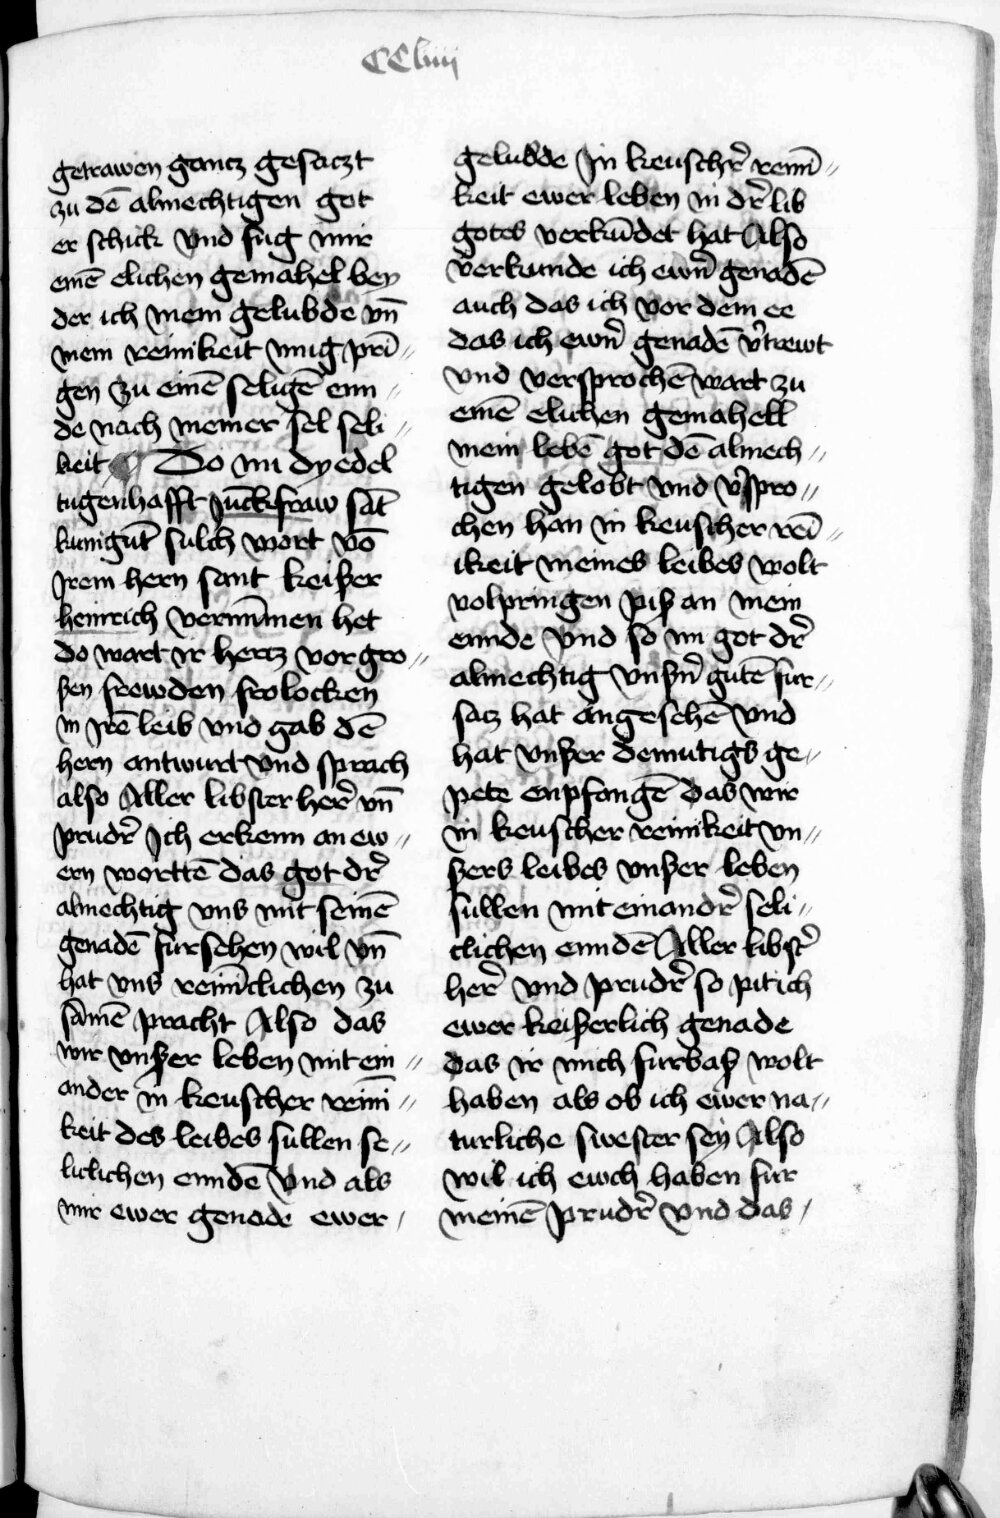 CCliiii
getrawen gancz gesaczt
zu dē almechtigen got
er schick vnd fug mir
einē elichen gemahel bey
der ich mein gelubde vn̄
mein reinikeit mug prī⸗
gen zu einē seligē enn⸗
de nach meiner sel seli⸗
keit Do nu dy edel
tugenhafft Jūckfraw sāt
kunigūt sulch wort vō
Jrem hern sant keißer
heinrich vernūmen het
do wart ir hertz vor gro⸗
ßen frewden frolocken
in Jrē leib vnd gab dē
hern antwurt vnd sprach
also Aller libster her̄ vn̄
prudr̄ Ich erkenn an ew⸗
ern worttē das got dr̄
almechtig vns mit seinē
genadē fursehen wil vn̄
hat vns reīniclichen zu
sāmē pracht Also das
wir vnßer leben mit ein⸗
ander in keuscher reini⸗
keit des leibes sullen se⸗
liclichen enndē vnd als
mir ewer genade ewer
gelubde In keuschr̄ reinī⸗
keit ewer leben in dr̄ lib
gotes verkūdet hat Also
verkunde ich ewrn̄ genadē
auch das ich vor dem ee
das ich ewrn̄ genadē v̄trewt
vnd versprochē wart zu
einē elichen gemahell
mein lebē got dē almech⸗
tigen gelobt vnd v̄spro⸗
chen han in keuscher reī⸗
ikeit meines leibes wolt
volpringen piß an mein
ennde vnd so nu got dr̄
almechtig vnßrn̄ gutē fur⸗
satz hat angesehē vnd
hat vnßer demutigs ge⸗
pete enpfangē das wir
in keuscher reinikeit vn⸗
sers leibes vnßer leben
sullen mit einandr̄ seli⸗
clichen enndē Aller libstr̄
her̄ vnd prudr̄ so pit ich
ewer keißerlich genade
das ir mich furbaß wolt
haben als ob ich ewer na⸗
turliche swester sey Also
wil ich ewch haben fur
meinē prudr̄ vnd das